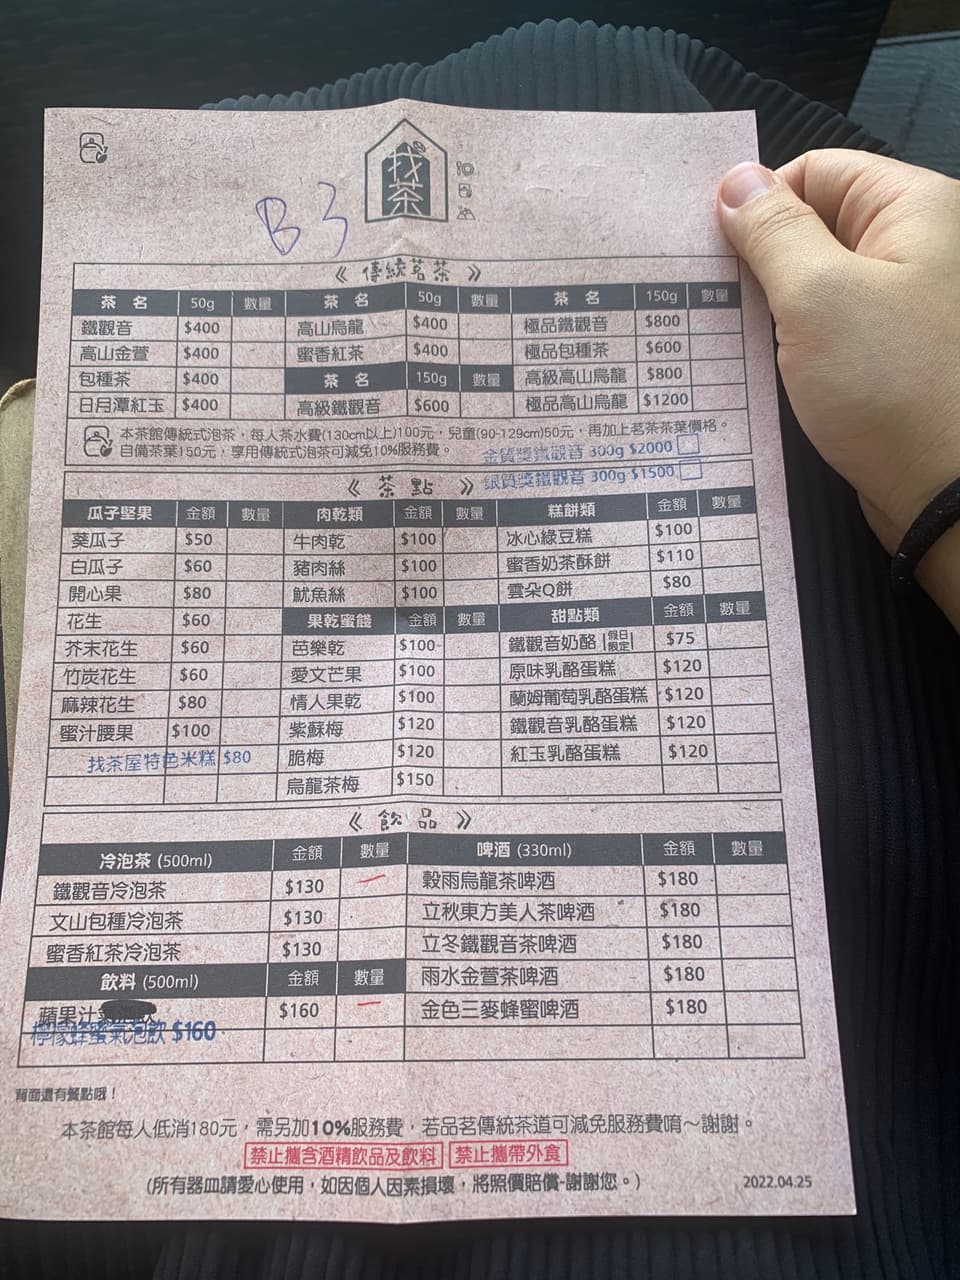 找茶
B3
《 傳統茗茶 》
茶 名 50g 數量 茶 名 50g 數量 茶 名 150g 數量
鐵觀音 $400 高山烏龍 $400 極品鐵觀音 $800
高山金萱 $400 蜜香紅茶 $400 極品包種茶 $600
包種茶 $400 茶 名 150g 數量 高級高山烏龍 $800
日月潭紅玉 $400 高級鐵觀音 $600 極品高山烏龍 $1200
本茶館傳統式泡茶，每人茶水費(130cm以上)100元，兒童(90-129cm)50元，再加上茗茶茶葉價格。
自備茶葉150元，享用傳統式泡茶可減免10%服務費。
金質獎鐵觀音 300g $2000
銀質獎鐵觀音 300g $1500
《 茶 點 》
瓜子堅果 金額 數量 肉乾類 金額 數量 糕餅類 金額 數量
葵瓜子 $50 牛肉乾 $100 冰心綠豆糕 $100
白瓜子 $60 豬肉絲 $100 蜜香奶茶酥餅 $110
開心果 $80 魷魚絲 $100 雲朵Q餅 $80
花生 $60 果乾蜜餞 金額 數量 甜點類 金額 數量
芥末花生 $60 芭樂乾 $100 鐵觀音奶酪 |假日限定| $75
竹炭花生 $60 愛文芒果 $100 原味乳酪蛋糕 $120
麻辣花生 $80 情人果乾 $100 蘭姆葡萄乳酪蛋糕 $120
蜜汁腰果 $100 紫蘇梅 $120 鐵觀音乳酪蛋糕 $120
找茶屋特色米糕 $80 脆梅 $120 紅玉乳酪蛋糕 $120
烏龍茶梅 $150
《 飲 品 》
冷泡茶 (500ml) 金額 數量 啤酒 (330ml) 金額 數量
鐵觀音冷泡茶 $130 一 穀雨烏龍茶啤酒 $180
文山包種冷泡茶 $130 立秋東方美人茶啤酒 $180
蜜香紅茶冷泡茶 $130 立冬鐵觀音茶啤酒 $180
飲料 (500ml) 金額 數量 雨水金萱茶啤酒 $180
蘋果汁 $160 一 金色三麥蜂蜜啤酒 $180
檸檬蜂蜜氣泡飲 $160
背面還有餐點哦！
本茶館每人低消180元，需另加10%服務費，若品茗傳統茶道可減免服務費唷～謝謝。
禁止攜含酒精飲品及飲料 禁止攜帶外食
(所有器皿請愛心使用，如因個人因素損壞，將照價賠償-謝謝您。)
2022.04.25